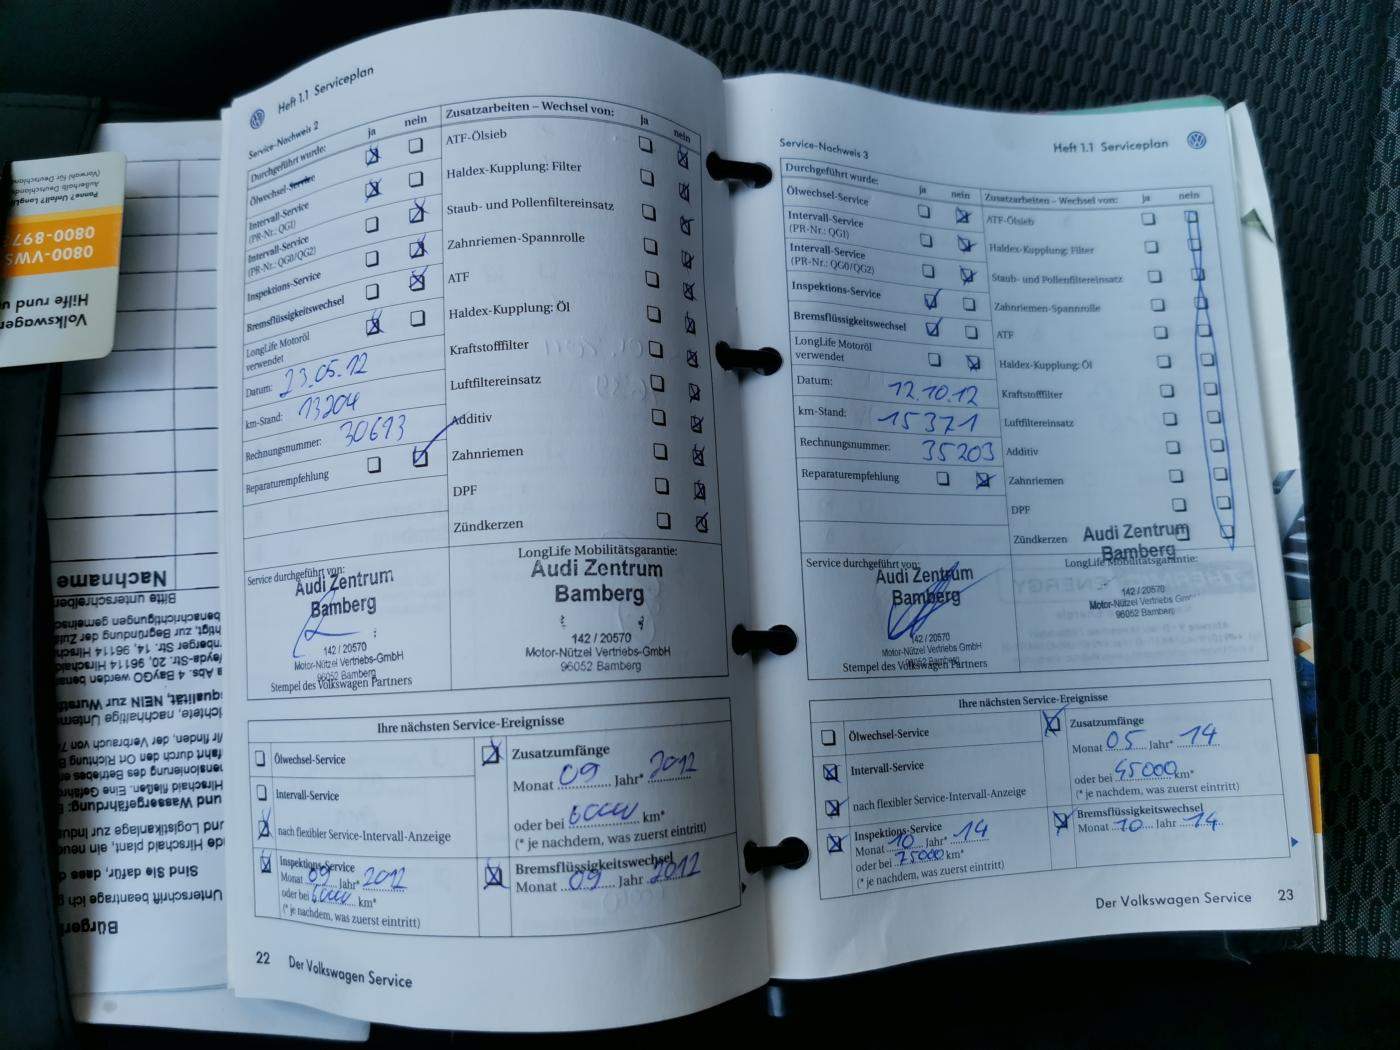 Heft 1.1 Serviceplan
Service-Nachweis 2
Durchgeführt wurde: ja nein
Ölwechsel-Service
Intervall-Service
(PR-Nr.: QG1)
Intervall-Service
(PR-Nr.: QG0/QG2)
Inspektions-Service
Bremsflüssigkeitswechsel
LongLife Motoröl
verwendet
Datum: 23.05.12
km-Stand: 13204
Rechnungsnummer: 30673
Reparaturempfehlung
Zusatzarbeiten – Wechsel von: ja nein
ATF-Ölsieb
Haldex-Kupplung: Filter
Staub- und Pollenfiltereinsatz
Zahnriemen-Spannrolle
ATF
Haldex-Kupplung: Öl
Kraftstofffilter
Luftfiltereinsatz
Additiv
Zahnriemen
DPF
Zündkerzen
Service durchgeführt von:
Audi Zentrum
Bamberg
142 / 20570
Motor-Nützel Vertriebs-GmbH
96052 Bamberg
Stempel des Volkswagen Partners
LongLife Mobilitätsgarantie:
Audi Zentrum
Bamberg
142 / 20570
Motor-Nützel Vertriebs-GmbH
96052 Bamberg
Ihre nächsten Service-Ereignisse
Ölwechsel-Service
Intervall-Service
nach flexibler Service-Intervall-Anzeige
Inspektions-Service
Monat 09 Jahr* 2012
oder bei km*
(* je nachdem, was zuerst eintritt)
Zusatzumfänge
Monat 09 Jahr* 2012
oder bei km*
(* je nachdem, was zuerst eintritt)
Bremsflüssigkeitswechsel
Monat 09 Jahr 2012
22 Der Volkswagen Service
Service-Nachweis 3
Heft 1.1 Serviceplan
Durchgeführt wurde: ja nein
Ölwechsel-Service
Intervall-Service
(PR-Nr.: QG1)
Intervall-Service
(PR-Nr.: QG0/QG2)
Inspektions-Service
Bremsflüssigkeitswechsel
LongLife Motoröl
verwendet
Datum: 12.10.12
km-Stand: 15371
Rechnungsnummer: 35203
Reparaturempfehlung
Zusatzarbeiten – Wechsel von: ja nein
ATF-Ölsieb
Haldex-Kupplung: Filter
Staub- und Pollenfiltereinsatz
Zahnriemen-Spannrolle
ATF
Haldex-Kupplung: Öl
Kraftstofffilter
Luftfiltereinsatz
Additiv
Zahnriemen
DPF
Zündkerzen
Service durchgeführt von:
Audi Zentrum
Bamberg
142 / 20570
Motor-Nützel Vertriebs-GmbH
96052 Bamberg
Stempel des Volkswagen Partners
Audi Zentrum
Bamberg
LongLife Mobilitätsgarantie:
142 / 20570
Motor-Nützel Vertriebs-Gm
96052 Bamberg
Ihre nächsten Service-Ereignisse
Ölwechsel-Service
Intervall-Service
nach flexibler Service-Intervall-Anzeige
Inspektions-Service
Monat 10 Jahr* 14
oder bei 75000 km*
(* je nachdem, was zuerst eintritt)
Zusatzumfänge
Monat 05 Jahr* 14
oder bei 45000 km*
(* je nachdem, was zuerst eintritt)
Bremsflüssigkeitswechsel
Monat 10 Jahr 14
Der Volkswagen Service 23
Volkswagen
Hilfe rund u
0800-VWS
0800-897
Panne? Unfall?
Außerhalb Deutschlands
(Vorwahl für Deutschland
Nachname
Bitte unterschreiben
Sind Sie dafür, dass d
Unterschrift beantrage ich